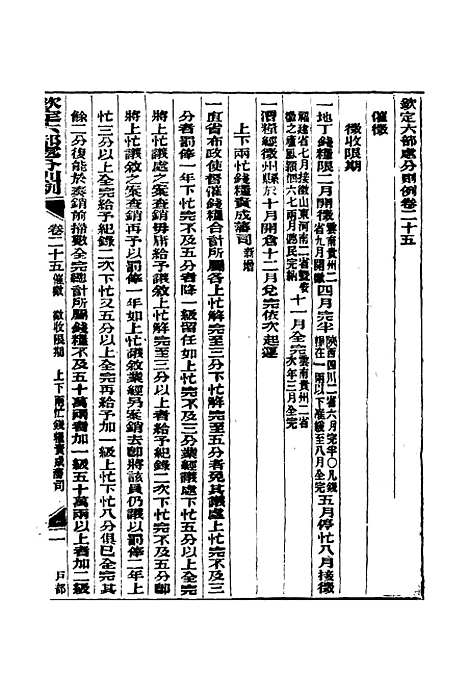 欽定六部處分則例卷二十五
催徵
徵收限期
一地丁錢糧限二月開徵雲南貴州二省九月開徵四月完半陝西四川二省六月完半〇凡錢糧在一兩以下准緩至八月全完五月停忙八月接徵
福建省七月接徵山東河南二省暨安徽之廬鳳潁泗六七兩月聽民完納十一月全完雲南貴州二省次年三月全完
一漕糧經徵州縣於十月開倉十二月兌完依次起運
上下兩忙錢糧責成藩司新增
一直省布政使督催錢糧合計所屬各上忙解完至三分下忙解完至五分者免其議處上忙完不及三
分者罰俸一年下忙完不及五分者降一級留任如上忙完不及三分業經議處下忙五分以上全完
將上忙議處之案查銷毋庸給予議敘上忙解完至三分以上者給予紀錄二次下忙完不及五分卽
將上忙議敘之案查銷再予以罰俸一年如上忙議敘業經另案銷去卽將該員仍議以罰俸二年上
忙三分以上全完給予紀錄二次下忙五分以上全完再給予加一級上忙下忙八分俱已全完其
餘二分復能於奏銷前掃數全完總計所屬錢糧不及五十萬兩者加一級五十萬兩以上者加二級
欽定六部處分則例
卷二十五催徵 徵收限期 上下兩忙錢糧責成藩司
一
戶部